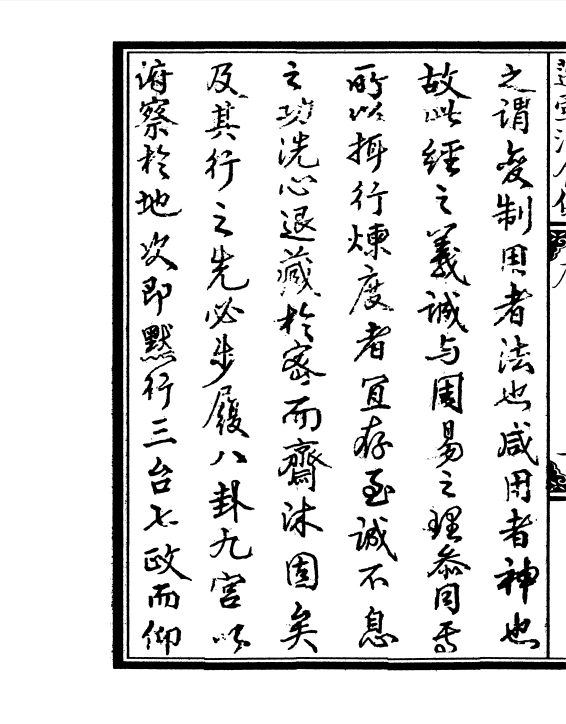 之謂變制用者法也咸用者神也
故此經之義誠与周易之理叅同焉
所以拜行煉度者宜存至誠不息
之功洗心退藏於密而齋沐固矣
及其行之先必步履八卦九宮以
俯察於地次即默行三台七政而仰